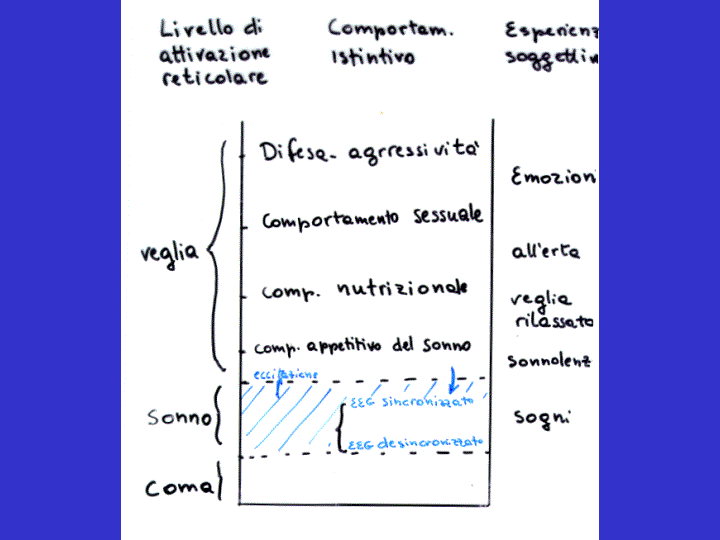 Livello di
attivazione
reticolare
Comportam.
istintivo
Esperienz
soggettiv
Difesa- agrressività
Emozioni
Comportamento sessuale
veglia
all'erta
Comp. nutrizionale
veglia
rilassato
comp. appetitivo del sonno
sonnolenz
eccitazione
EEG sincronizzato
Sonno
sogni
EEG desincronizzato
Coma